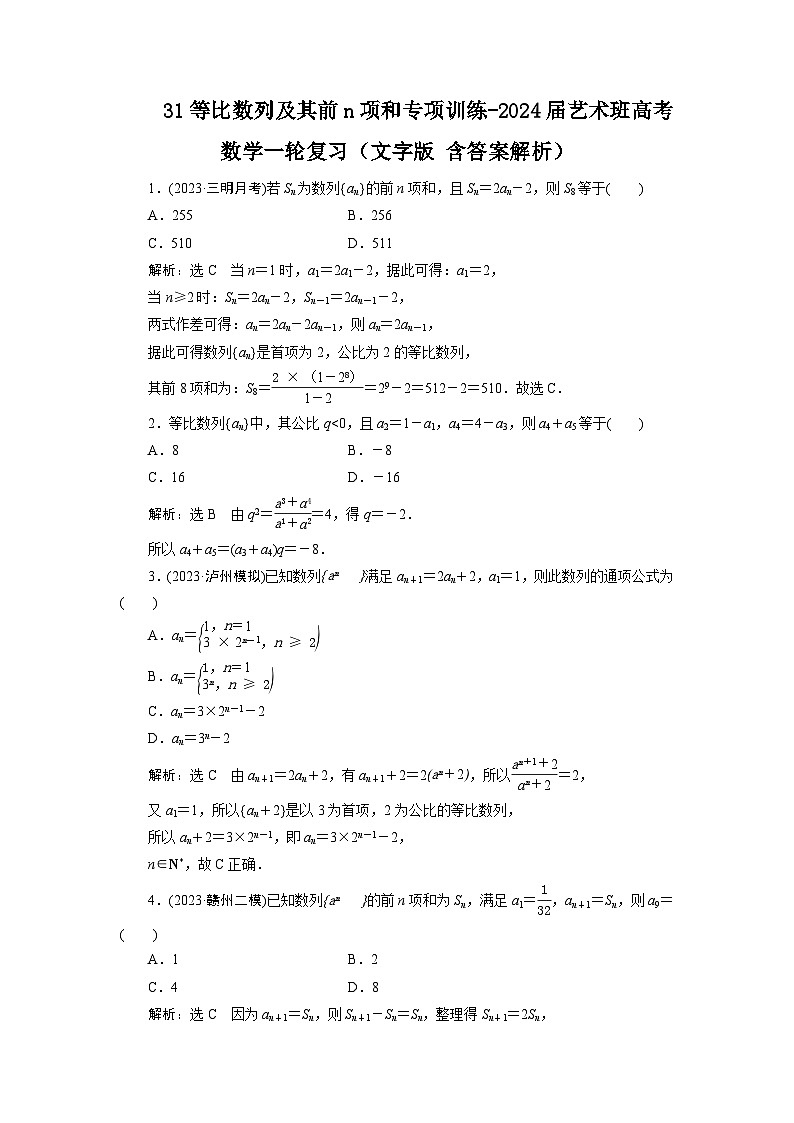 31 等比数列及其前 n 项和专项训练-2024 届艺术班高考
数学一轮复习（文字版 含答案解析）
1．(2023·三明月考)若 Sₙ为数列{aₙ}的前 n 项和，且 Sₙ＝2aₙ－2，则 S₈等于(　　)
A．255　B．256
C．510　D．511
解析：选 C　当 n＝1 时，a₁＝2a₁－2，据此可得：a₁＝2，
当 n≥2 时：Sₙ＝2aₙ－2，Sₙ₋₁＝2aₙ₋₁－2，
两式作差可得：aₙ＝2aₙ－2aₙ₋₁，则 aₙ＝2aₙ₋₁，
据此可得数列{aₙ}是首项为 2，公比为 2 的等比数列，
其前 8 项和为：S₈＝2 ×（1－2⁸）/1－2＝2⁹－2＝512－2＝510．故选 C．
2．等比数列{aₙ}中，其公比 q<0，且 a₂＝1－a₁，a₄＝4－a₃，则 a₄＋a₅等于(　　)
A．8　B．－8
C．16　D．－16
解析：选 B　由 q²＝a³＋a⁴/a¹＋a²＝4，得 q＝－2．
所以 a₄＋a₅＝(a₃＋a₄)q＝－8．
3．(2023·泸州模拟)已知数列{aⁿ　}满足 aₙ₊₁＝2aₙ＋2，a₁＝1，则此数列的通项公式为
(　　)
A．aₙ＝{1，n＝1
3 × 2ⁿ⁻¹，n ≥ 2)
B．aₙ＝{1，n＝1
3ⁿ，n ≥ 2)
C．aₙ＝3×2ⁿ⁻¹－2
D．aₙ＝3ⁿ－2
解析：选 C　由 aₙ₊₁＝2aₙ＋2，有 aₙ₊₁＋2＝2(aⁿ＋2)，所以aⁿ⁺¹＋2/aⁿ＋2＝2，
又 a₁＝1，所以{aₙ＋2}是以 3 为首项，2 为公比的等比数列，
所以 aₙ＋2＝3×2ⁿ⁻¹，即 aₙ＝3×2ⁿ⁻¹－2，
n∈N*，故 C 正确．
4．(2023·赣州二模)已知数列{aⁿ　}的前 n 项和为 Sₙ，满足 a₁＝1/32，aₙ₊₁＝Sₙ，则 a₉＝
(　　)
A．1　B．2
C．4　D．8
解析：选 C　因为 aₙ₊₁＝Sₙ，则 Sₙ₊₁－Sₙ＝Sₙ，整理得 Sₙ₊₁＝2Sₙ，